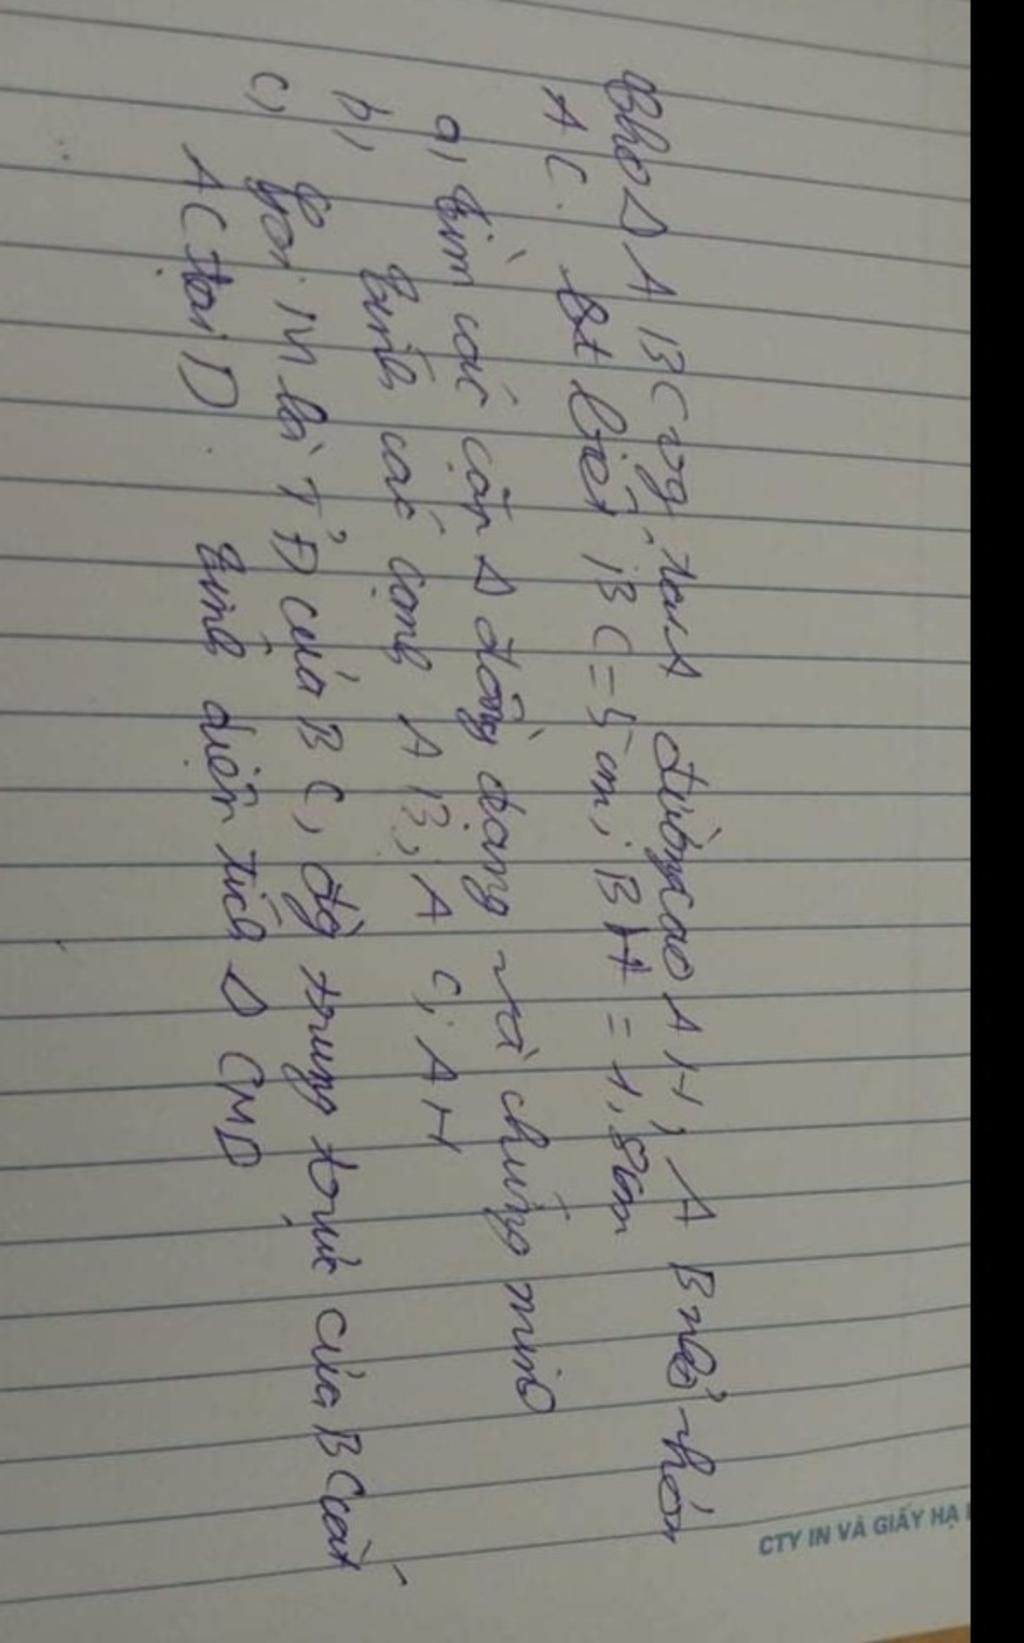 Cho Δ ABC vg tại A đường cao AH, AB nhỏ hơn
AC. biết BC = 5cm, BH = 1,8cm
a, Tìm các cặp Δ đồng dạng và chứng minh
b, Tính các cạnh AB, AC, AH
c, Gọi M là TĐ của BC, đg trung trực của BC cắt
AC tại D. Tính diện tích Δ CMD
CTY IN VÀ GIẤY HẠ